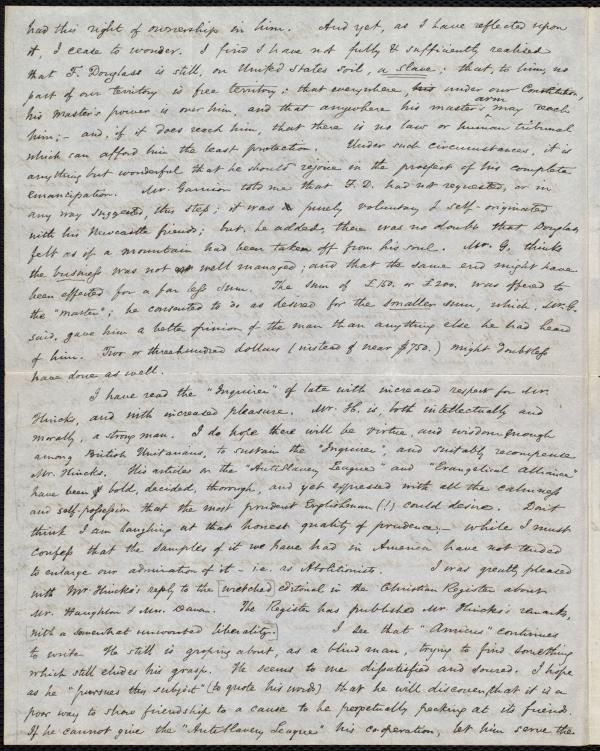 had this right of ownership in him. And yet, as I have reflected upon
it, I cease to wonder. I find I have not fully & sufficiently realized
that F. Douglass is still, on United States soil, a slave; that, to him, no
part of our territory is free territory; that everywhere, under our Constitution,
his master's power is over him, and that anywhere his master's arm may reach
him; - and, if it does reach him, that there is no law or human tribunal
which can afford him the least protection. Under such circumstances, it is
anything but wonderful that he should rejoice in the prospect of his complete
emancipation. Mr. Garrison told me that F. D. had not requested, or in
any way suggested, this step; it was purely voluntary & self-originated
with his Newcastle friends; but, he added, there was no doubt that Douglass
felt as if a mountain had been taken off from his soul. Mr. G. thinks
the business was not well managed; and that the same end might have
been effected for a far less sum. The sum of £150. or £200. was offered to
the "master"; he consented to do as desired for the smaller sum, which, Mr. G.
said, gave him a better opinion of the man than anything else he had heard
of him. Two or three hundred dollars (instead of near $750.) might doubtless
have done as well.
I have read the "Inquirer" of late with increased respect for Mr.
Hincks, and with increased pleasure. Mr. H. is, both intellectually and
morally, a strong man. I do hope there will be virtue, and wisdom enough
among British Unitarians, to sustain the "Inquirer", and suitably recompense
Mr. Hincks. His articles on the "AntiSlavery League" and "Evangelical Alliance"
have been bold, decided, thorough, and yet expressed with all the calmness
and self-possession that the most prudent Englishman (!) could desire. Don't
think I am laughing at that honest quality of prudence; - while I must
confess that the samples of it we have had in America have not tended
to enlarge our admiration of it - i.e. as Abolitionists. I was greatly pleased
with Mr Hincks's reply to the [wretched] editorial in the Christian Register about
Mr. Haughton & Mr. Davis. The Register has published Mr Hincks's remarks,
with a somewhat unwonted liberality. I see that "Amicus" continues
to write. He still is groping about, as a blind man, trying to find something
which still eludes his grasp. He seems to me dissatisfied and soured. I hope
as he "pursues this subject" (to quote his words) that he will discover, that it is a
poor way to show friendship to a cause to be perpetually pecking at its friend.
If he cannot give the "AntiSlavery League" his co-operation, let him serve the